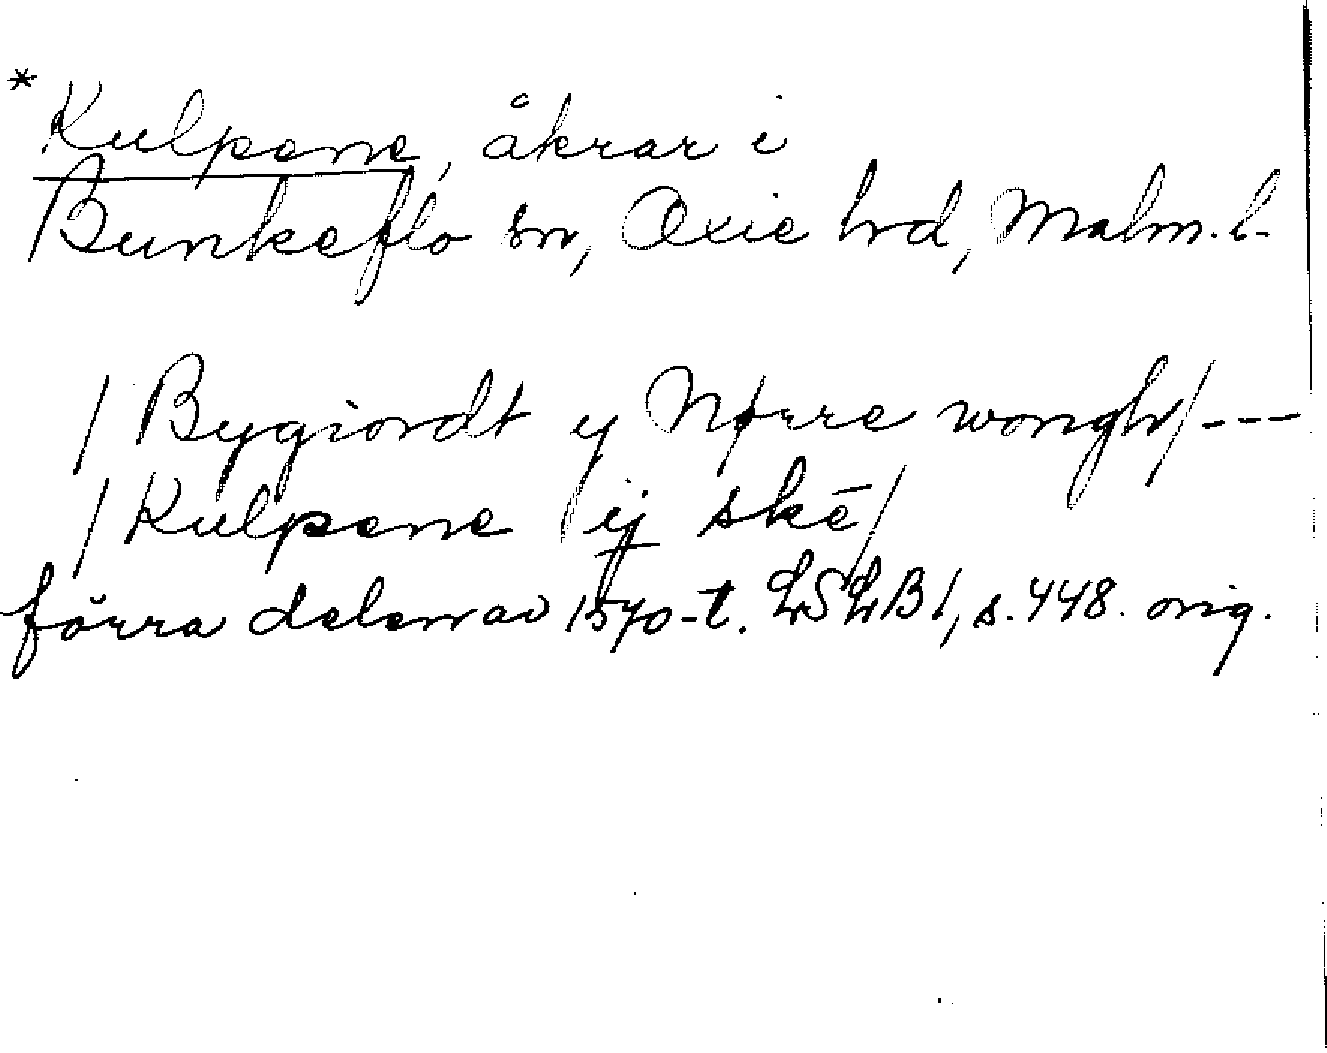 * Kulpene, åkrar i
Bunkeflo sn, Oxie hrd, Malm. l.
/ Bygiordt y Nørre wongh / ---
/ Kulpene ij skē /
förra delen av 1570-t. LSLB 1, s. 448. orig.